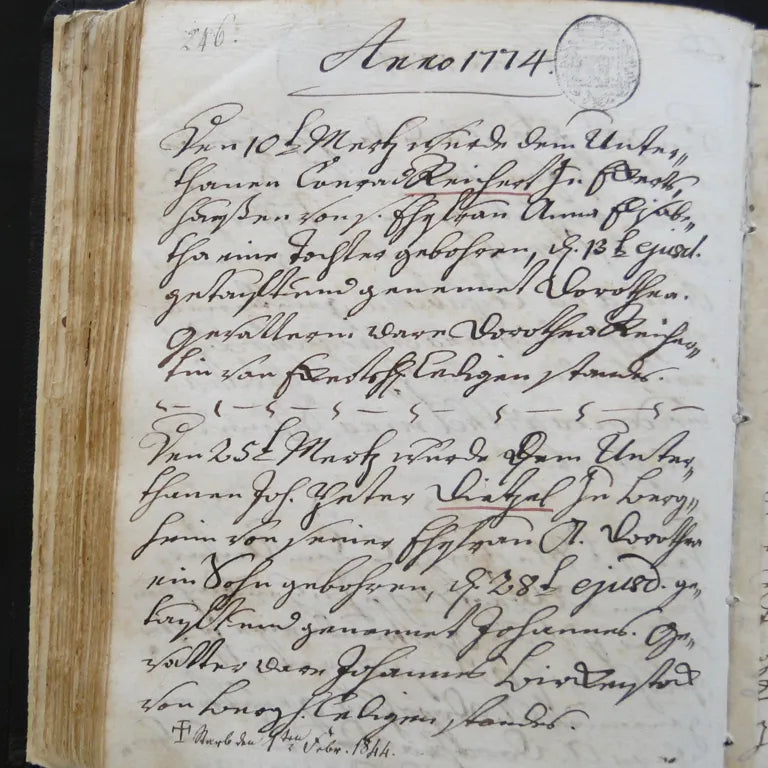 246.
Anno 1774.
Den 10t Mertz wurde dem Unter„
thanen Conrad Reichert In Effects,
haußen von s. Ehefrau Anna Elisabe„
tha eine Tochter gebohren, d. 13t ejusd.
getaufft und genennet Dorothea.
Gevatterin ware Dorothea Reicher„
tin von ledigen standes.
Den 25t Mertz wurde dem Unter„
thanen Joh. Peter Dietzel In Berg„
heim von seiner Ehefrau A. Dorothea
ein Sohn gebohren, d. 28t ejusd. ge„
taufft und genennet Johannes. Ge„
vatter ware Johannes Birckenstock
von Bergh. ledigen standes.
Starb den Febr. 1844.